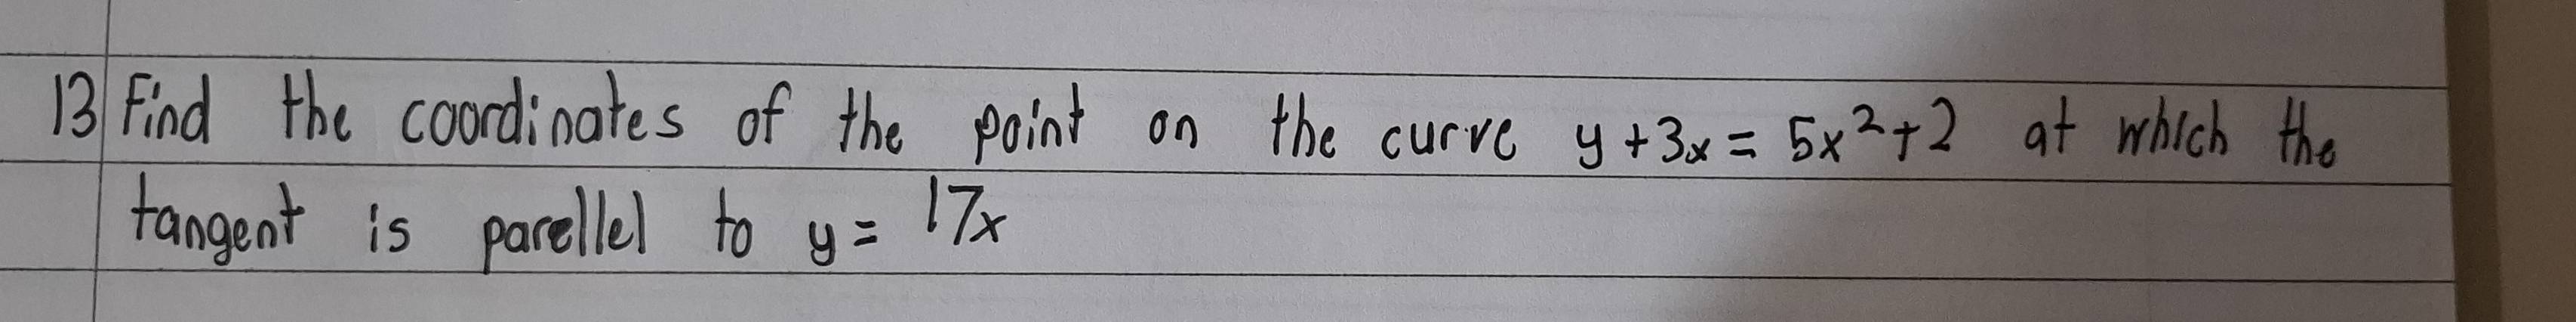 13 Find the coordinates of the point on the curve y + 3x = 5x² + 2 at which the
tangent is parellel to y = 17x